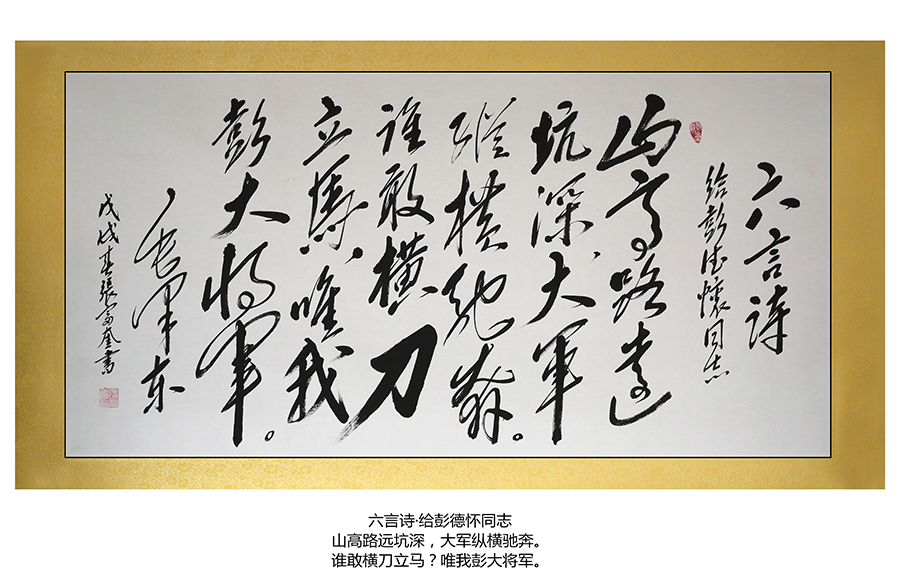 六言诗
给彭德怀同志
山高路远
坑深,大军
纵横驰奔。
谁敢横刀
立馬,唯我
彭大将军。
毛泽东
戊戌春張富奎書
六言诗·给彭德怀同志
山高路远坑深，大军纵横驰奔。
谁敢横刀立马？唯我彭大将军。